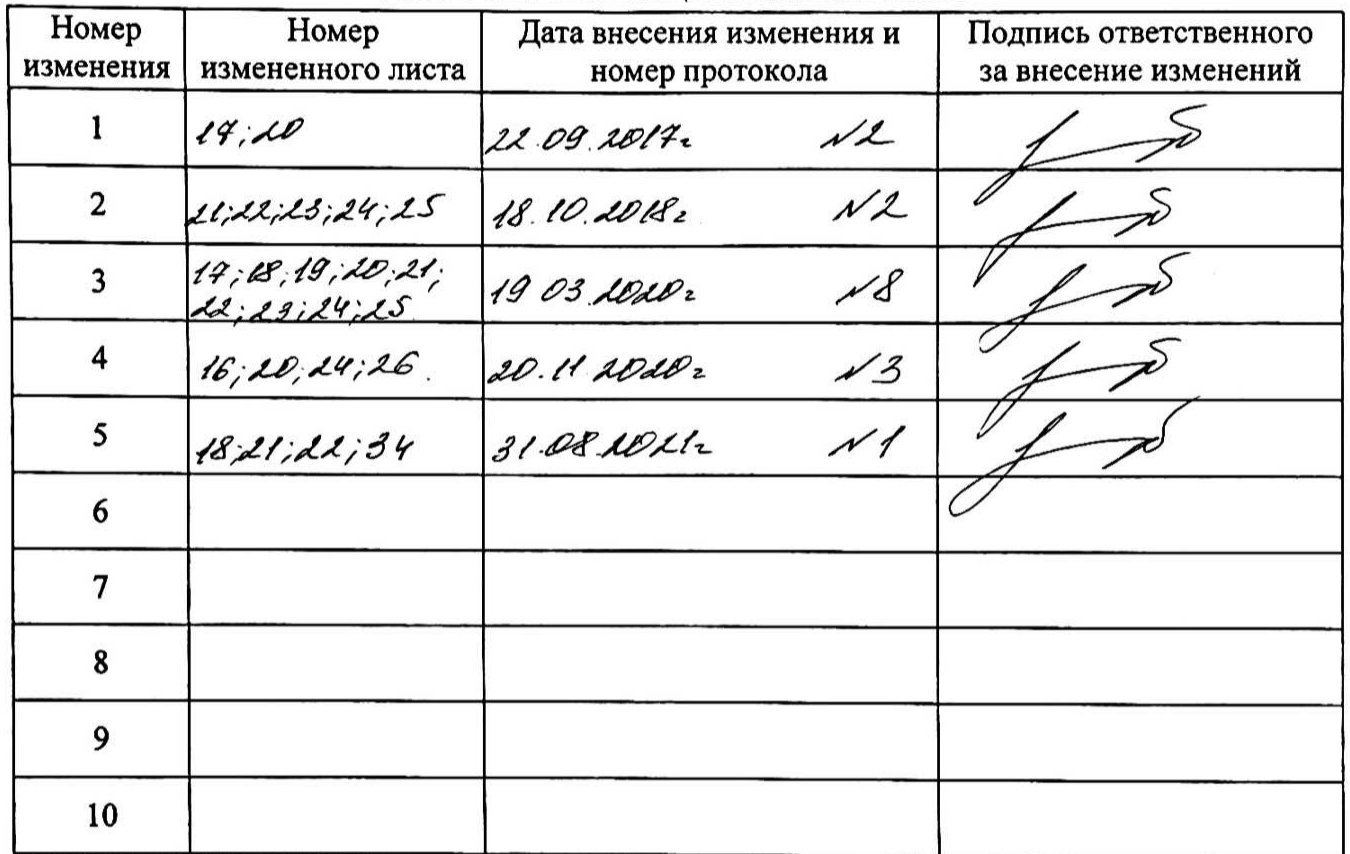 Номер изменения | Номер измененного листа | Дата внесения изменения и номер протокола | Подпись ответственного за внесение изменений
1 | 17;20 | 22.09.2017г N2
2 | 21;22;23;24;25 | 18.10.2018г N2
3 | 17;18;19;20;21; 22;23;24;25 | 19 03.2020г N8
4 | 16;20;24;26. | 20.11 2020г N3
5 | 18;21;22;34 | 31.08.2021г N1
6
7
8
9
10